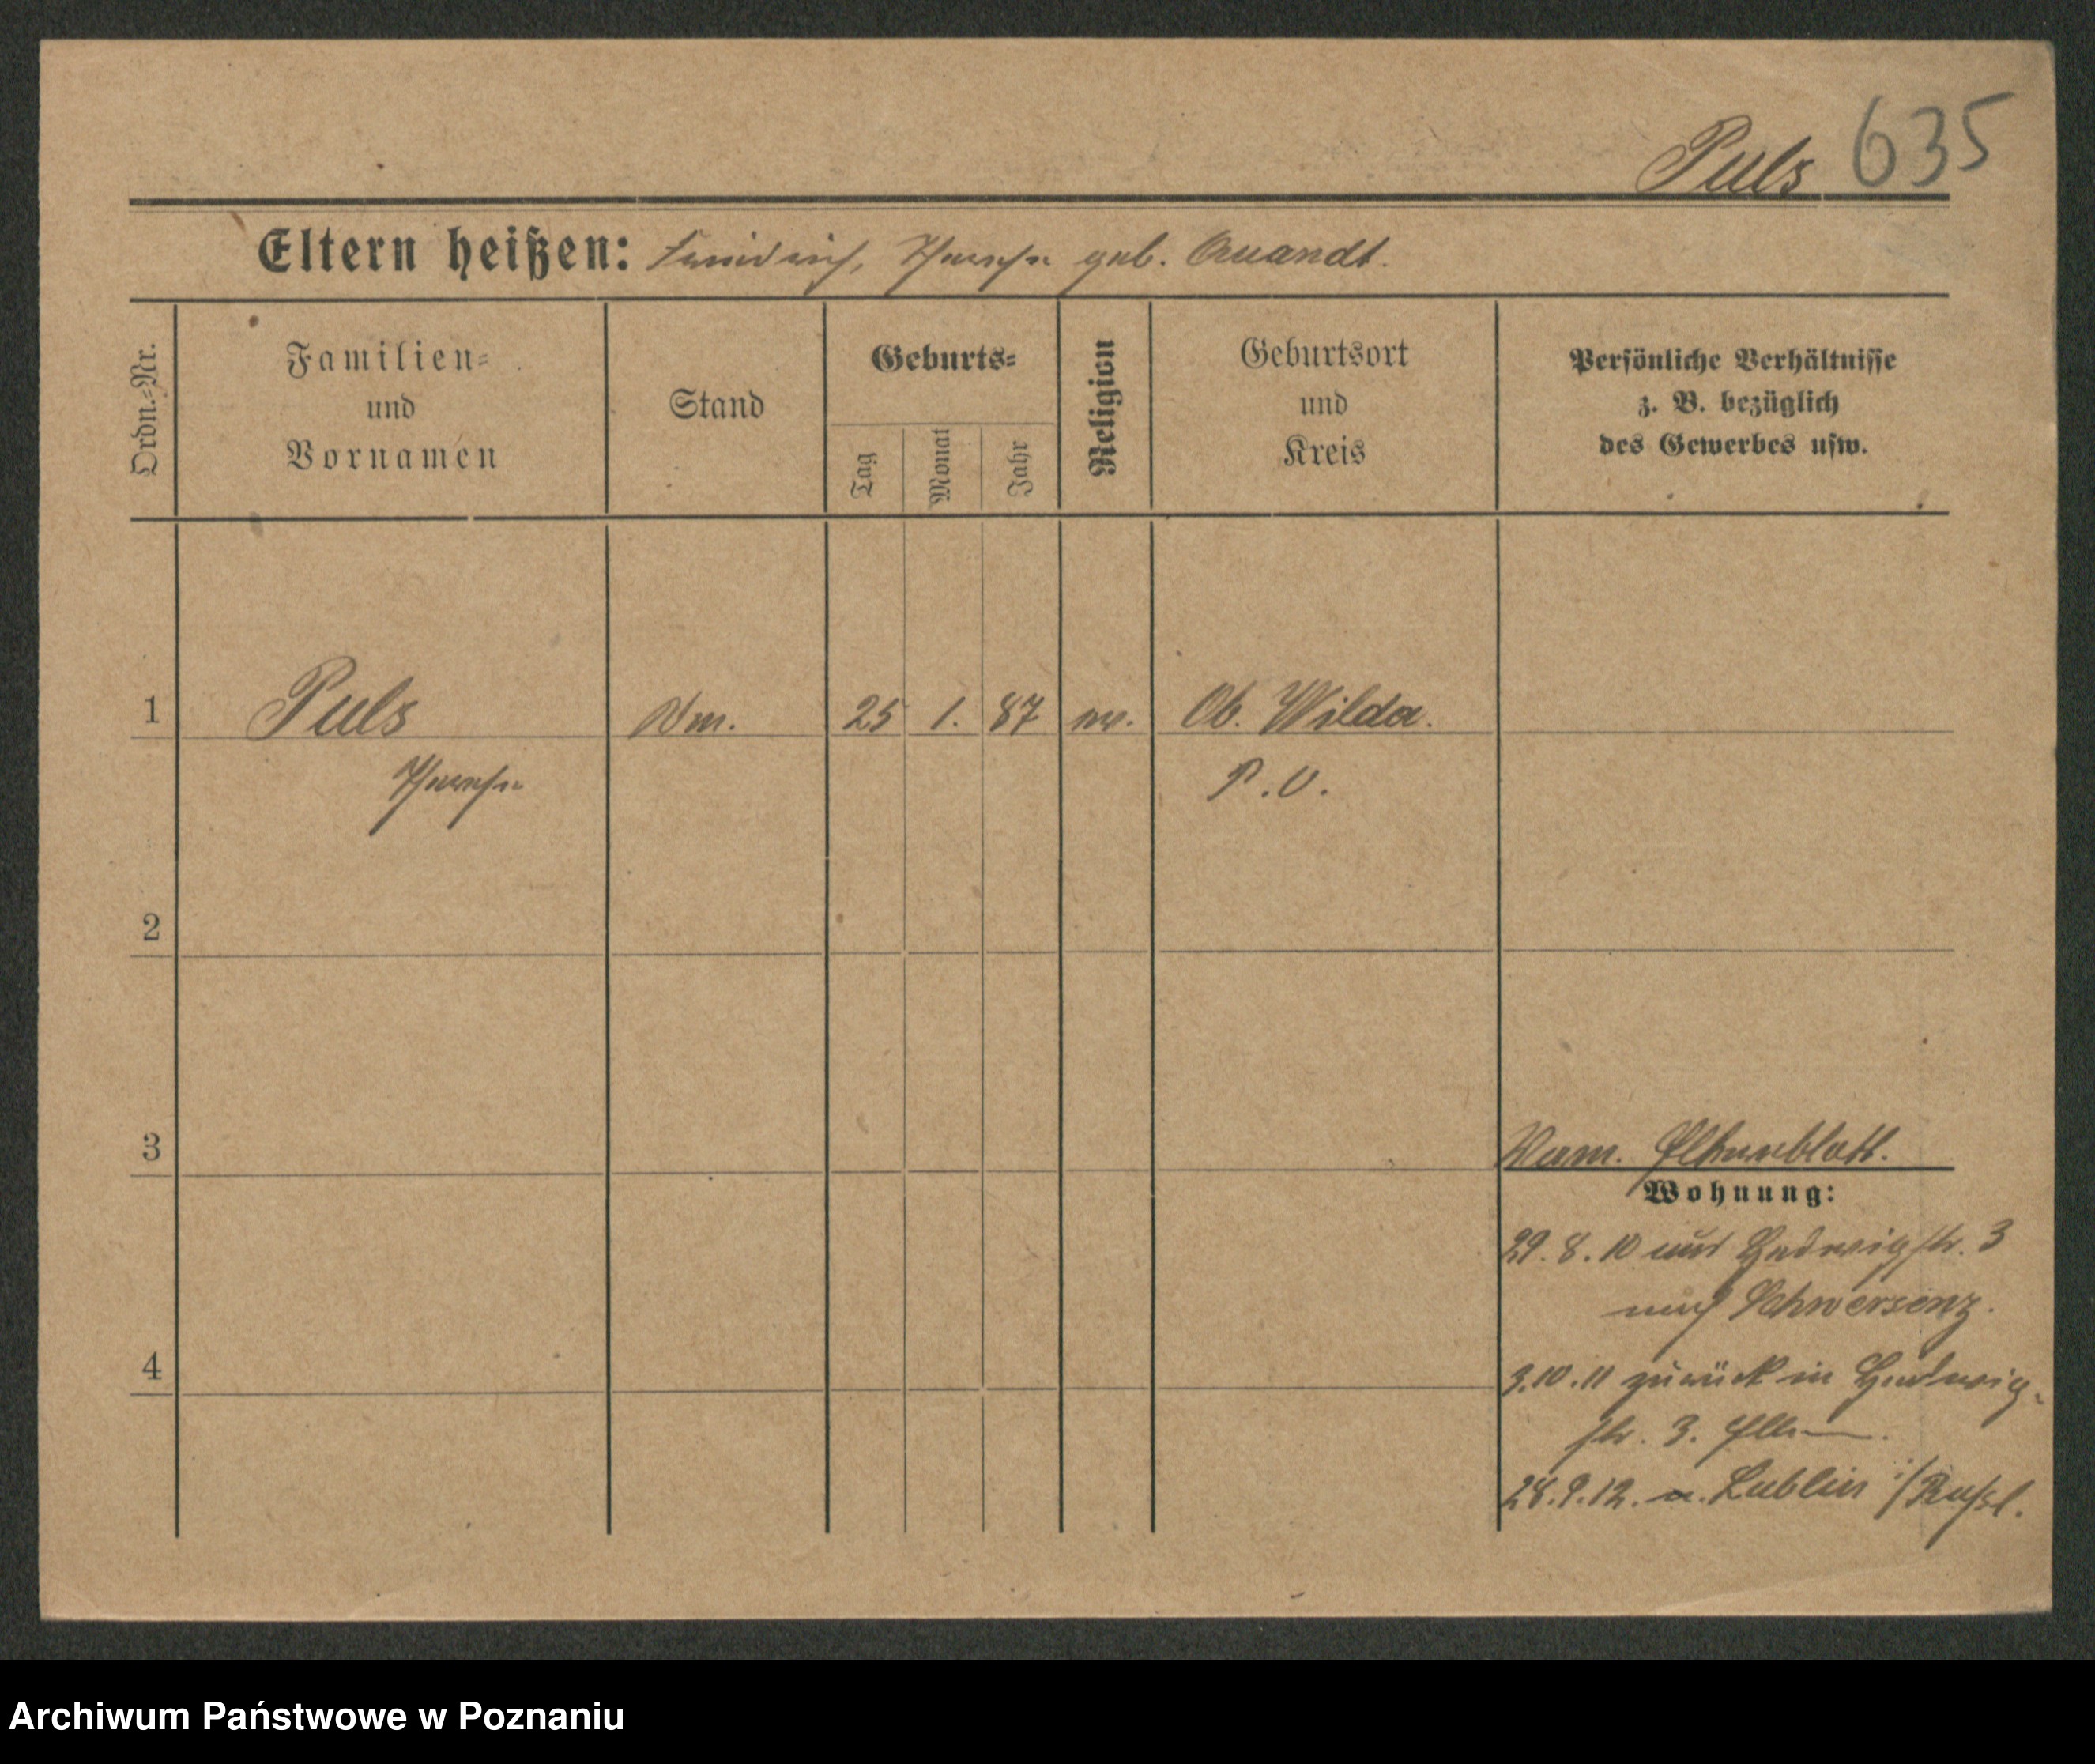 Puls 635
Eltern heißen: Friedrich, Therese geb. Quandt.
Ordn.-Nr.
Familien-
und
Vornamen
Stand
Geburts-
Tag
Monat
Jahr
Religion
Geburtsort
und
Kreis
Persönliche Verhältnisse
z. B. bezüglich
des Gewerbes usw.
1 Puls 25 1. 87 ev. Ob. Wilda.
Therese P. O.
2
3 Elternblatt.
Wohnung:
29. 8. 10 aus Hedwigstr. 3
nach Schwersenz.
4 3.10.11 zurück in Hedwig-
str. 3.
28.9.12. n. Lublin i/Russl.
Archiwum Państwowe w Poznaniu